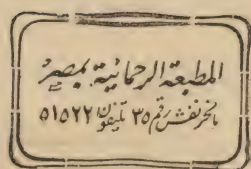 المطبعة الرحمانية بمصر
بالخرنفش رقم ٣٥ تليفون ٥١٥٢٢